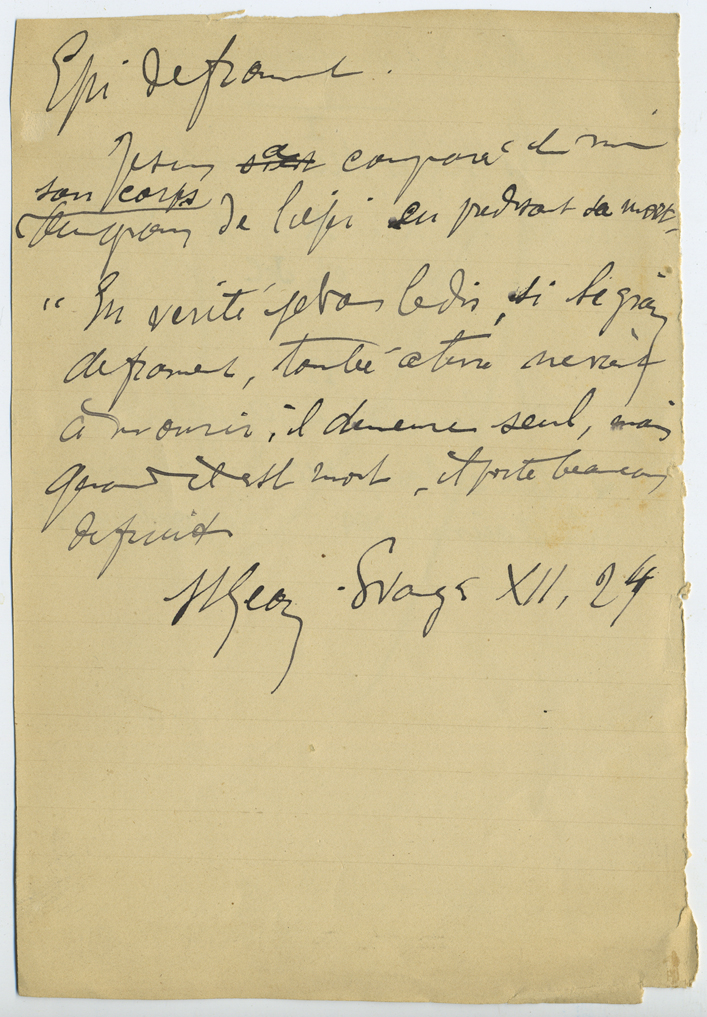 Epi de froment.
Jesus s'est a comparé lui mê
son corps
au grain de l'épi en predisant sa mort,
"En verité je vous le dis, si le grain
de froment, tombé a terre ne vient
à mourir, il demeure seul, mais
quand il est mort, il porte beaucoup
de fruits
St Jean Evang. XII, 24